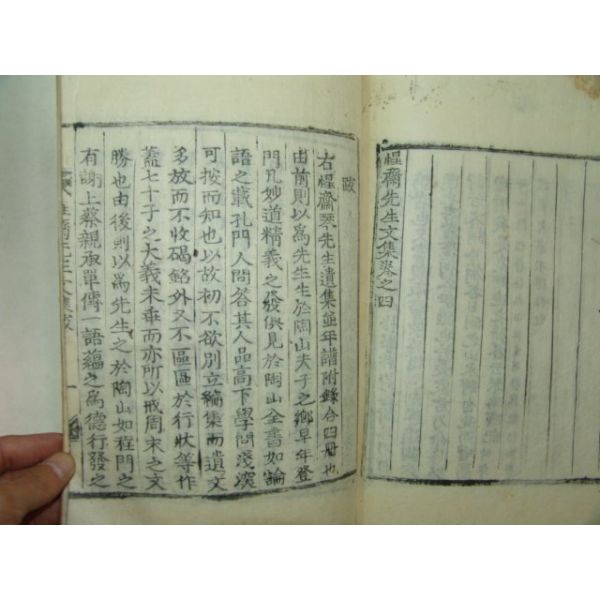 惺齋先生文集卷之四
跋
右惺齋琴先生遺集並年譜附錄合四冊也
由前則以爲先生生於陶山夫子之鄕早年登
門凡妙道精義之發俱見於陶山全書如論
語之載孔門人問答其人品高下學問淺深
可按而知也以故初不欲別立編集而遺文
多放而不收碣銘外又不區區於行狀等作
蓋七十子之大義未乖而亦所以戒周末之文
勝也由後則以爲先生之於陶山如程門之
有謝上蔡親承單傳一語蘊之爲德行發之